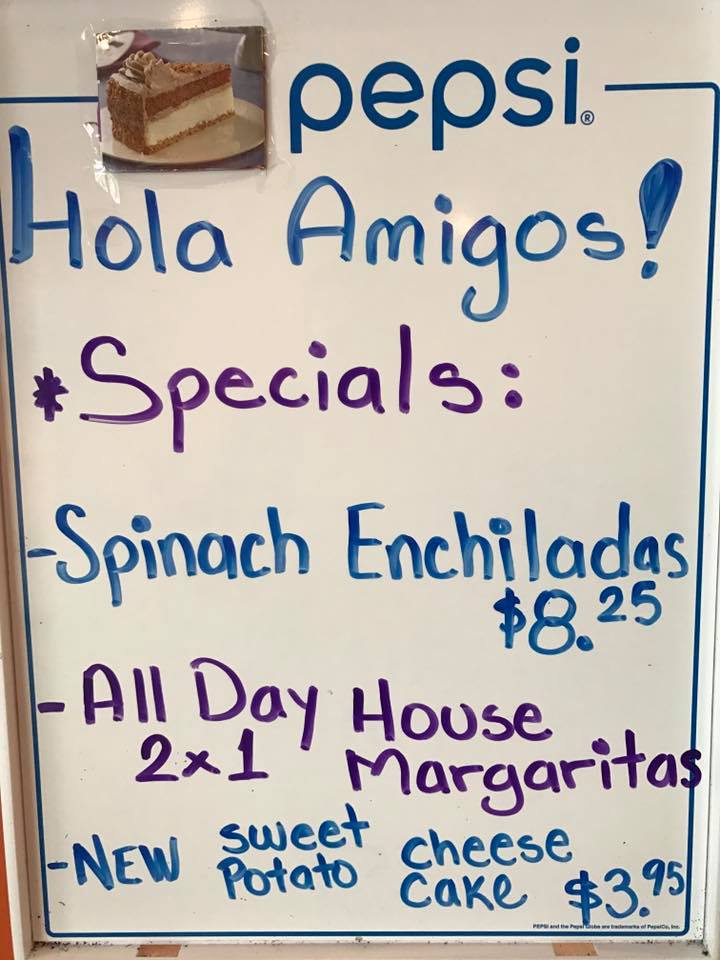 pepsi®
Hola Amigos!
*Specials:
-Spinach Enchiladas
$8.25
-All Day House
2x1 Margaritas
-NEW sweet Potato cheese cake $3.95
PEPSI and the Pepsi Globe are trademarks of PepsiCo, Inc.